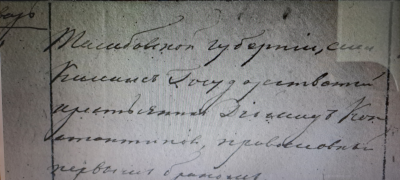 Тамбовской губернiи, села
Государственный
крестьянинъ Дiомидъ Кон
стантиновъ, православный
первымъ бракомъ